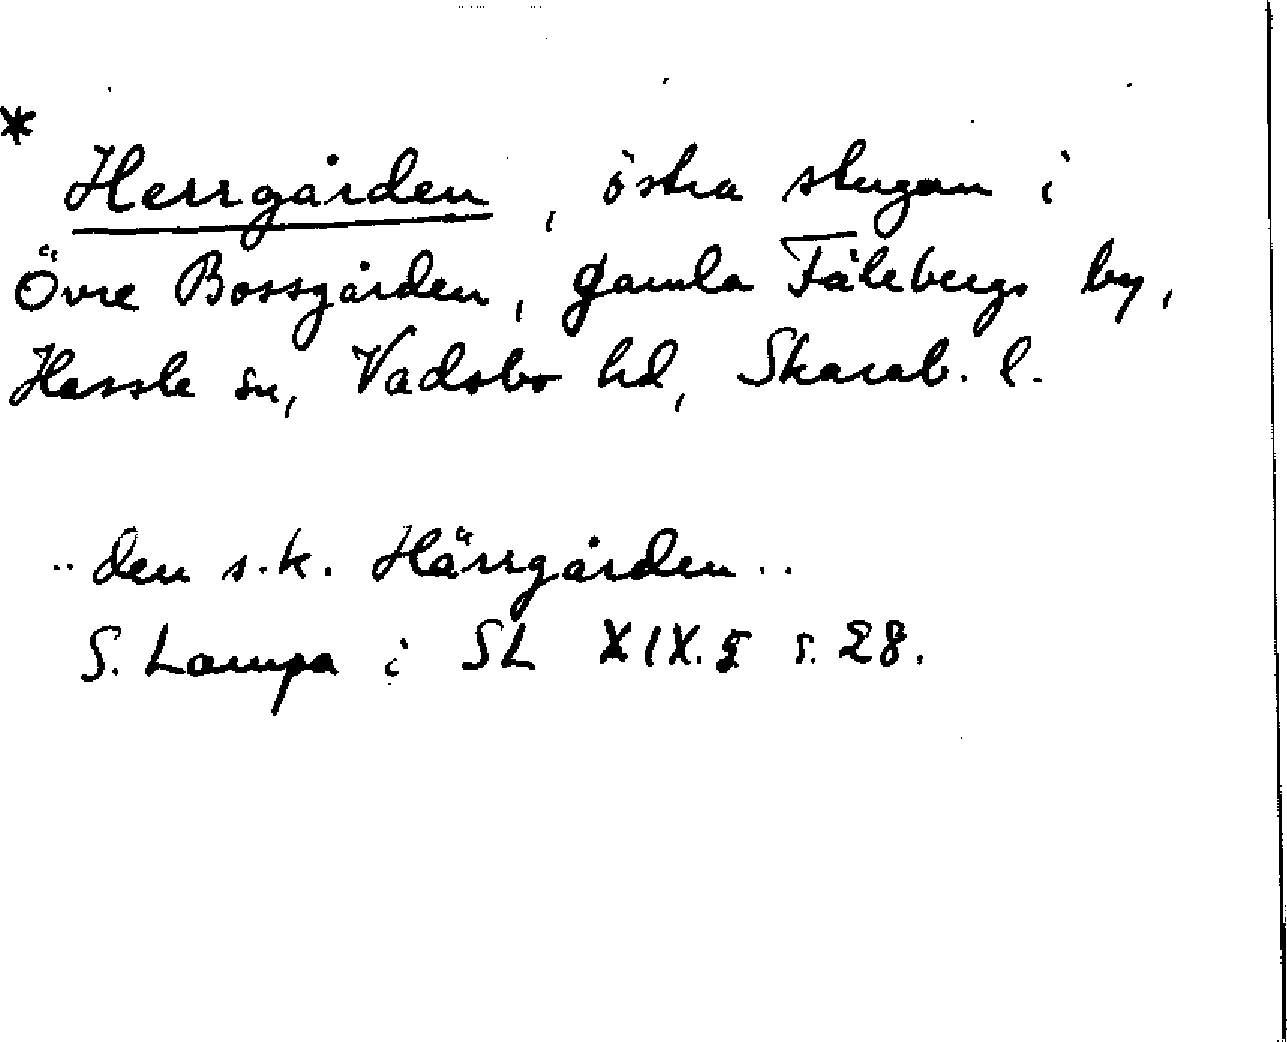 *
Herrgården, östra stugan i
Övre Bossgården, gamla Fälebergs by,
Hassle sn, Vadsbo hd, Skarab. l.
.. den s.k. Härrgården ..
S. Lampa i SL XIX.5 s. 28.